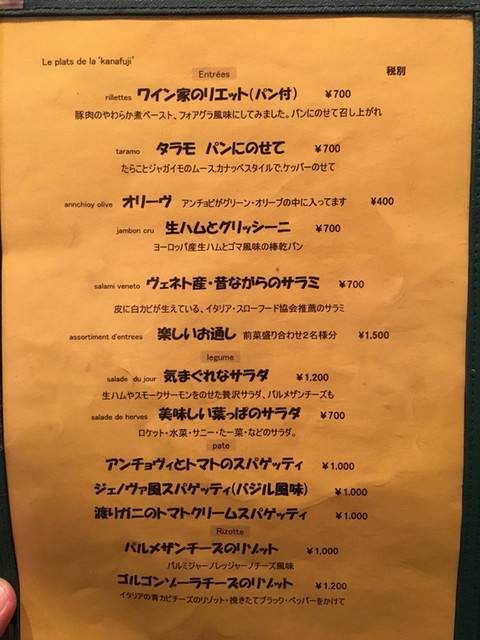 Le plats de la 'kanafuji'
税別
Entrées
rillettes ワイン家のリエット(パン付) ¥700
豚肉のやわらか煮ペースト、フォアグラ風味にしてみました。パンにのせて召し上がれ
taramo タラモ パンにのせて ¥700
たらことジャガイモのムース、カナッペスタイルで、ケッパーのせて
annchioy olive オリーヴ アンチョビがグリーン・オリーブの中に入ってます ¥400
jambon cru 生ハムとグリッシーニ ¥700
ヨーロッパ産生ハムとゴマ風味の棒乾パン
salami veneto ヴェネト産・昔ながらのサラミ ¥700
皮に白カビが生えている、イタリア・スローフード協会推薦のサラミ
assortiment d'entrees 楽しいお通し 前菜盛り合わせ2名様分 ¥1.500
legume
salade du jour 気まぐれなサラダ ¥1.200
生ハムやスモークサーモンをのせた贅沢サラダ、パルメザンチーズも
salade de herves 美味しい葉っぱのサラダ ¥700
ロケット・水菜・サニー・たー菜・などのサラダ。
pate
アンチョヴィとトマトのスパゲッティ ¥1.000
ジェノヴァ風スパゲッティ(バジル風味) ¥1.000
渡りガニのトマトクリームスパゲッティ ¥1.000
Rizotte
パルメザンチーズのリゾット ¥1.000
パルミジャーノレッジャーノチーズ風味
ゴルゴンゾーラチーズのリゾット ¥1.200
イタリアの青カビチーズのリゾット・挽きたてブラック・ペッパーをかけて